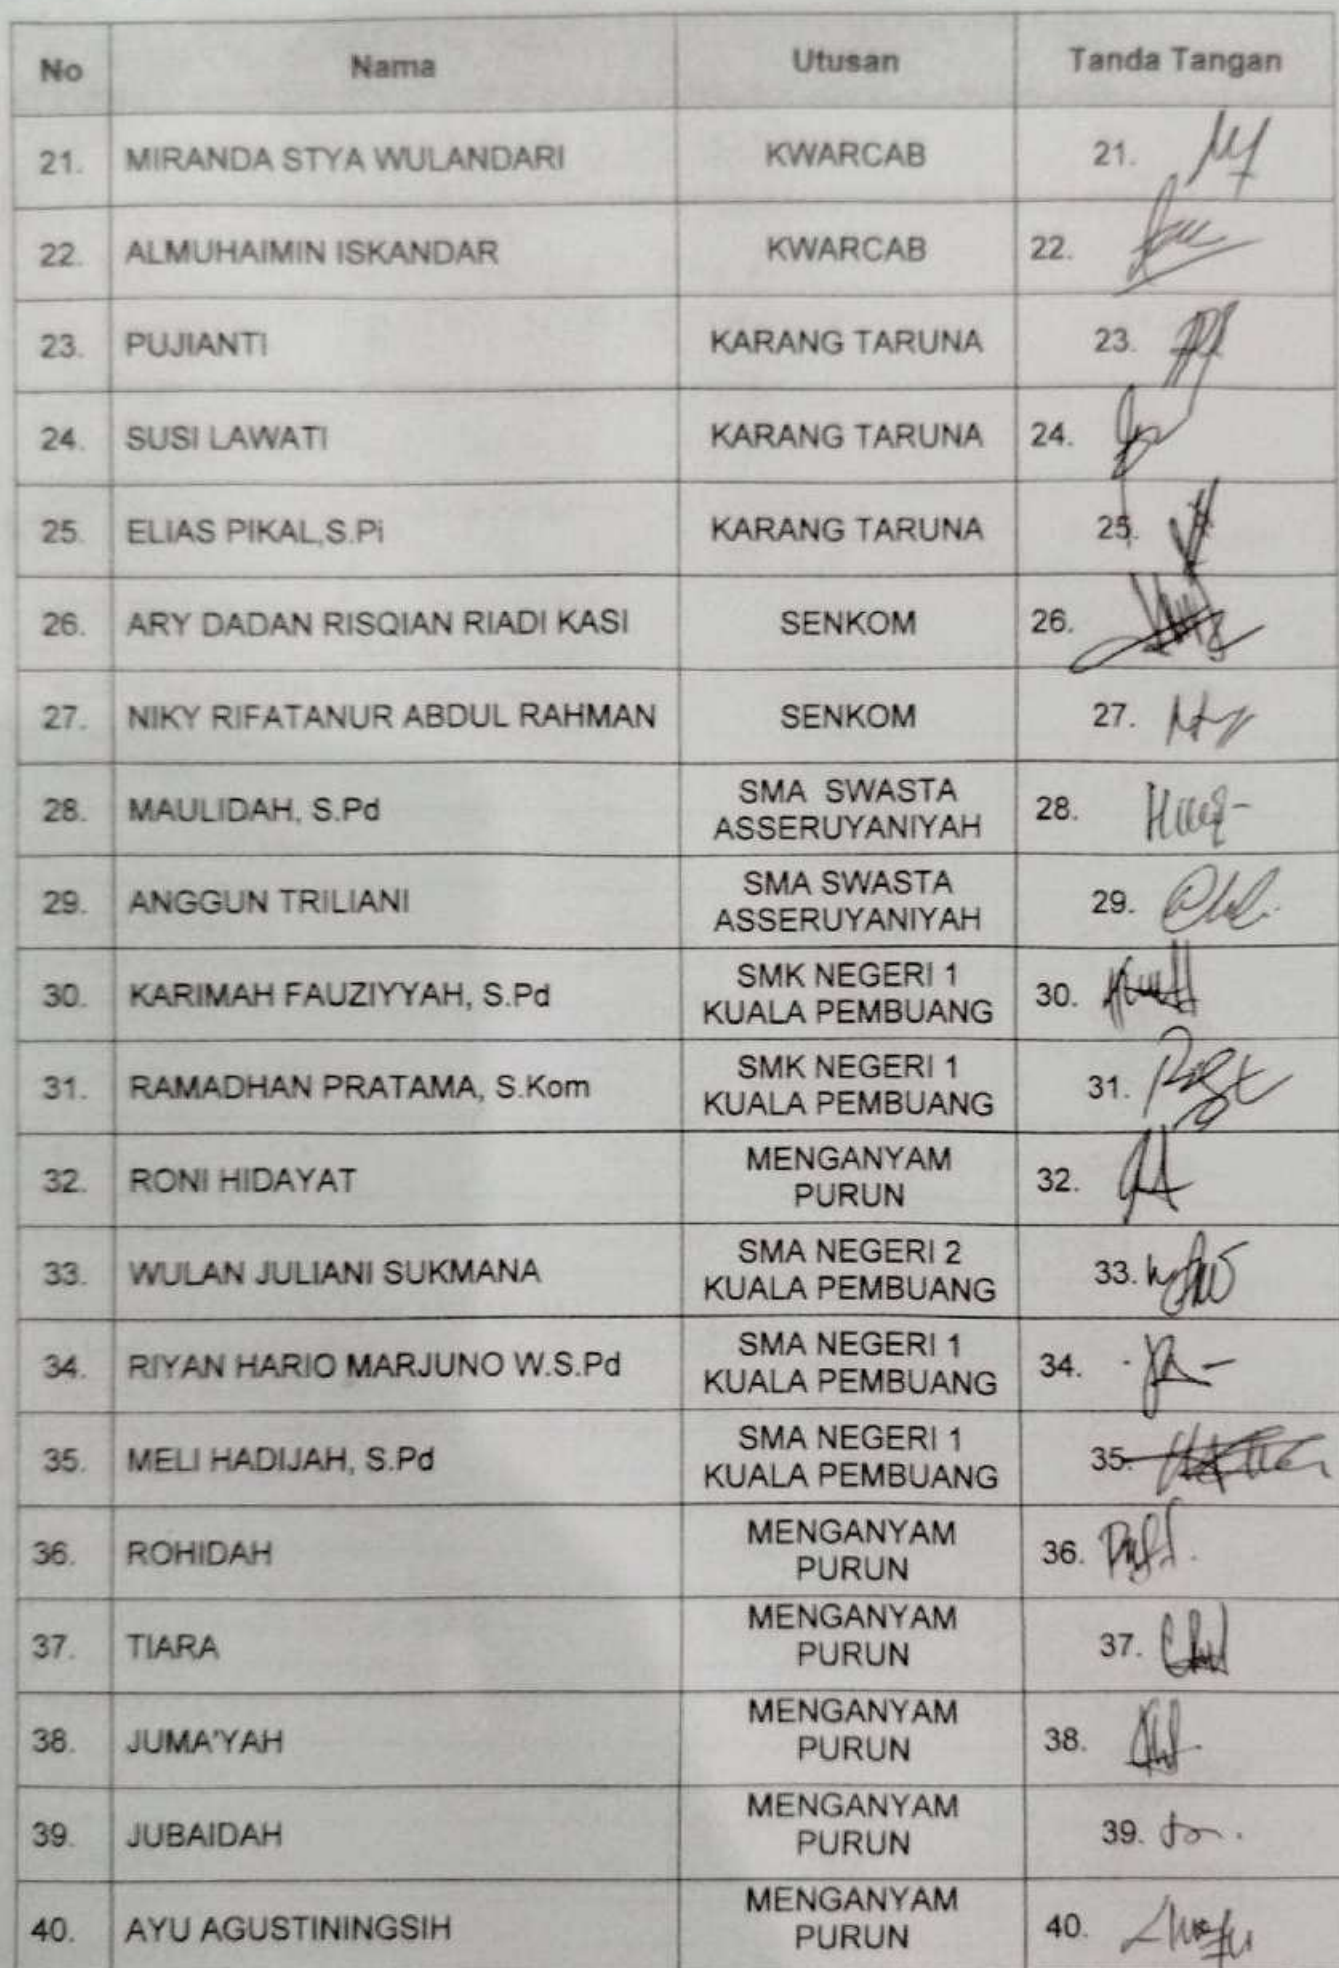 No Nama Utusan Tanda Tangan
21. MIRANDA STYA WULANDARI KWARCAB 21.
22. ALMUHAIMIN ISKANDAR KWARCAB 22.
23. PUJIANTI KARANG TARUNA 23.
24. SUSI LAWATI KARANG TARUNA 24.
25. ELIAS PIKAL,S.Pi KARANG TARUNA 25.
26. ARY DADAN RISQIAN RIADI KASI SENKOM 26.
27. NIKY RIFATANUR ABDUL RAHMAN SENKOM 27.
28. MAULIDAH, S.Pd SMA SWASTA
ASSERUYANIYAH 28.
29. ANGGUN TRILIANI SMA SWASTA
ASSERUYANIYAH 29.
30. KARIMAH FAUZIYYAH, S.Pd SMK NEGERI 1
KUALA PEMBUANG 30.
31. RAMADHAN PRATAMA, S.Kom SMK NEGERI 1
KUALA PEMBUANG 31.
32. RONI HIDAYAT MENGANYAM
PURUN 32.
33. WULAN JULIANI SUKMANA SMA NEGERI 2
KUALA PEMBUANG 33.
34. RIYAN HARIO MARJUNO W.S.Pd SMA NEGERI 1
KUALA PEMBUANG 34.
35. MELI HADIJAH, S.Pd SMA NEGERI 1
KUALA PEMBUANG 35.
36. ROHIDAH MENGANYAM
PURUN 36.
37. TIARA MENGANYAM
PURUN 37.
38. JUMA'YAH MENGANYAM
PURUN 38.
39. JUBAIDAH MENGANYAM
PURUN 39.
40. AYU AGUSTININGSIH MENGANYAM
PURUN 40.